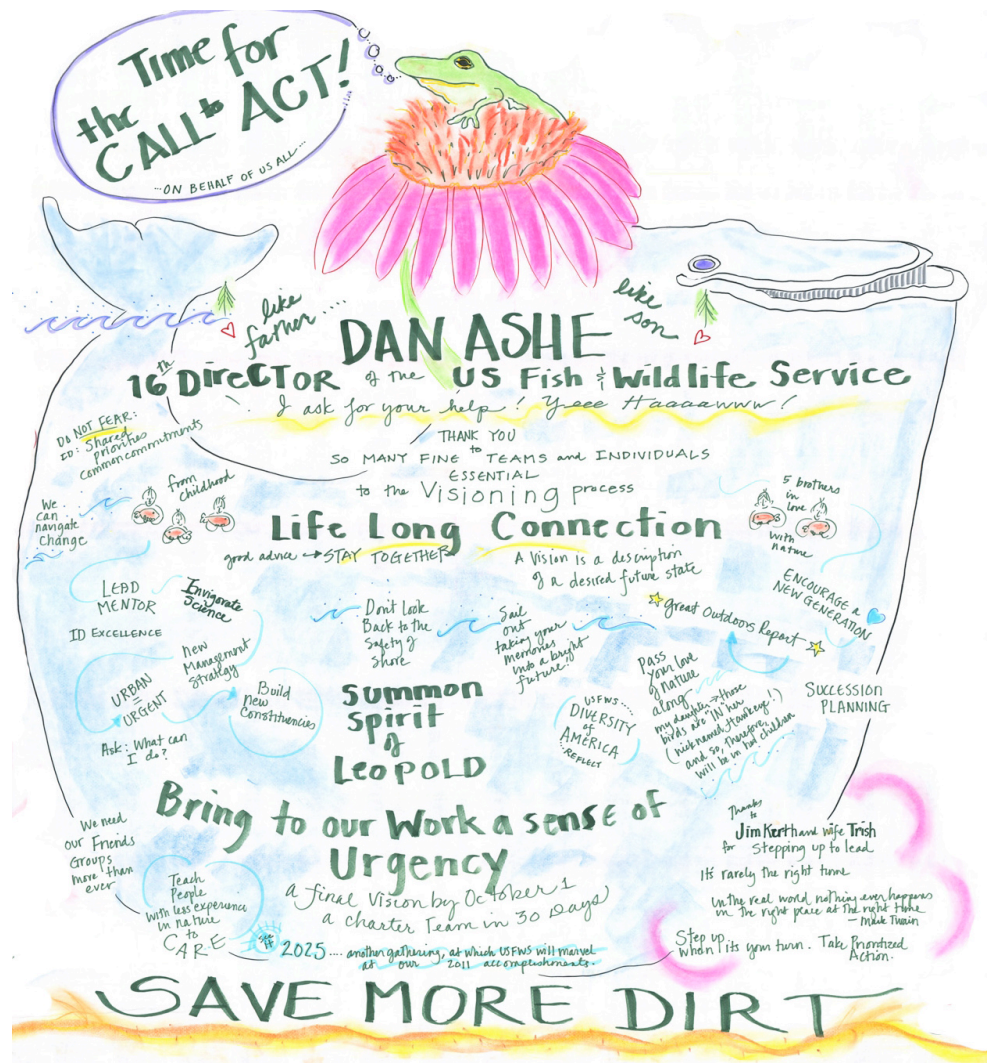 Time for
the
CALL to ACT!
...ON BEHALF OF US ALL...
like
father...
like
son
DAN ASHE
16th DIRECTOR of the US Fish & Wildlife Service
I ask for your help! Yeee Haaaawww!
THANK YOU
to
SO MANY FINE TEAMS and INDIVIDUALS
ESSENTIAL
to the Visioning process
DO NOT FEAR:
ID: Shared
priorities
common commitments
We
can
navigate
change
from
childhood
5 brothers
in
love
with
nature
Life Long Connection
good advice → STAY TOGETHER
A Vision is a description
of a desired future state
LEAD
MENTOR
Invigorate
Science
ID EXCELLENCE
New
Management
Strategy
URBAN
=
URGENT
Build
new
Constituencies
Ask: What can
I do?
Don't Look
Back to the
Safety of
Shore
Sail
out
taking your
memories
into a bright
future
Great Outdoors Report
ENCOURAGE a
NEW GENERATION
Summon
Spirit
of
LEOPOLD
USFWS...
DIVERSITY
of
AMERICA
...REFLECT
Pass
your love
of nature
along
my daughter → those
birds are "IN" her
(nicknamed Hawkeye!)
and so, therefore,
will be in her children
SUCCESSION
PLANNING
Bring to our Work a sense of
Urgency
a final Vision by October 1
a charter Team in 30 Days
We need
our Friends
Groups
more than
ever
Teach
People
with less experience
in nature
to
CARE
See
it
2025.... another gathering, at which USFWS will marvel
at our 2011 accomplishments.
Thanks
to
Jim Kurth and wife Trish
for Stepping up to lead
It's rarely the right time
In the real world nothing ever happens
in the right place at the right time
— Mark Twain
Step up
when it's your turn. Take Prioritized
Action.
SAVE MORE DIRT